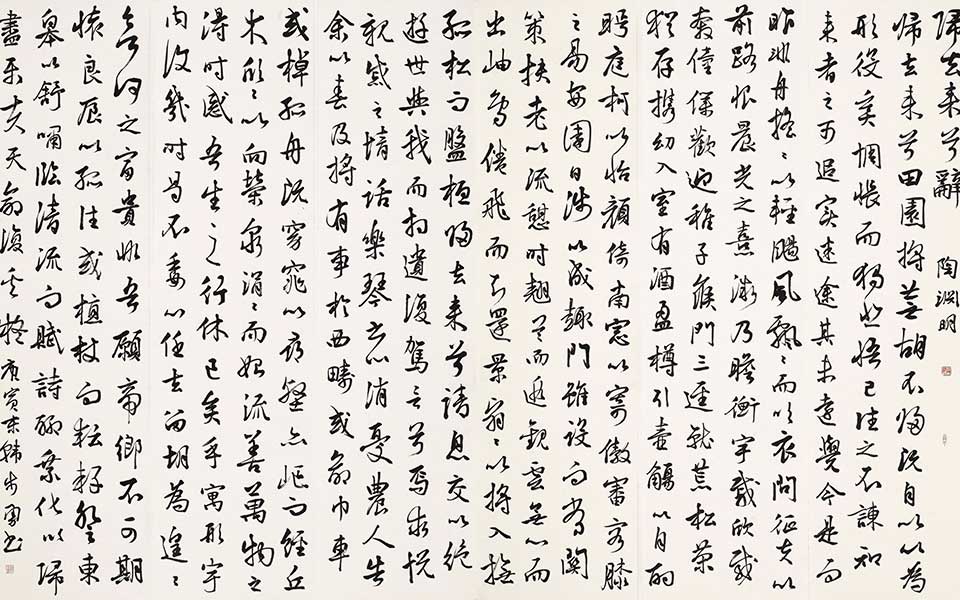 歸去來兮辭 陶淵明
歸去來兮田園將蕪胡不歸既自以心為
形役奚惆悵而獨悲悟已往之不諫知
來者之可追實迷途其未遠覺今是而
昨非舟搖搖以輕颺風飄飄而吹衣問征夫以
前路恨晨光之熹微乃瞻衡宇載欣載
奔僮僕歡迎稚子候門三逕就荒松菊
猶存攜幼入室有酒盈樽引壺觴以自酌
眄庭柯以怡顏倚南窗以寄傲審容膝
之易安園日涉以成趣門雖設而常關
策扶老以流憩時翹首而遐觀雲無心而
出岫鳥倦飛而知還景翳翳以將入撫
孤松而盤桓歸去來兮請息交以絕
遊世與我而相遺復駕言兮焉求悅
親戚之情話樂琴書以消憂農人告
余以春及將有事於西疇或命巾車
或棹孤舟既窈窕以尋壑亦崎嶇而經丘
木欣欣以向榮泉涓涓而始流善萬物之
得時感吾生之行休已矣乎寓形宇
內復幾時曷不委心任去留胡為遑遑
欲何之富貴非吾願帝鄉不可期
懷良辰以孤往或植杖而耘耔登東
皋以舒嘯臨清流而賦詩聊乘化以歸
盡樂夫天命復奚疑 庚寅 韓 書